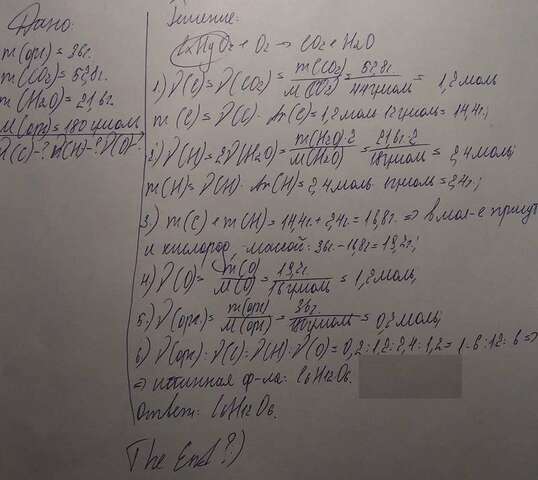 Дано:
m(орг)=36г.
m(CO2)=52,8г.
m(H2O)=21,6г.
M(орг)=180 г/моль
ν(C)-? ν(H)-? ν(O)-?
Решение:
CxHyOz + O2 → CO2 + H2O
1.) ν(C)=ν(CO2)= m(CO2)/M(CO2) = 52,8г./44г/моль = 1,2 моль
m(C)=ν(C)·Ar(C)=1,2моль·12г/моль=14,4г.;
2.) ν(H)=2ν(H2O)= m(H2O)·2/M(H2O) = 21,6г·2/18г/моль = 2,4 моль;
m(H)=ν(H)·Ar(H)=2,4моль·1г/моль=2,4г.;
3.) m(C)+m(H)=14,4г.+2,4г=16,8г. => в мол-е присут
и кислород, массой: 36г-16,8г=19,2г.;
4.) ν(O)= m(O)/M(O) = 19,2г./16г/моль = 1,2 моль;
5.) ν(орг.)= m(орг)/M(орг) = 36г/180г/моль = 0,2 моль;
6.) ν(орг):ν(C):ν(H):ν(O)=0,2:1,2:2,4:1,2=1:6:12:6 =>
=> истинная ф-ла: C6H12O6.
Ответ: C6H12O6.
The End?)